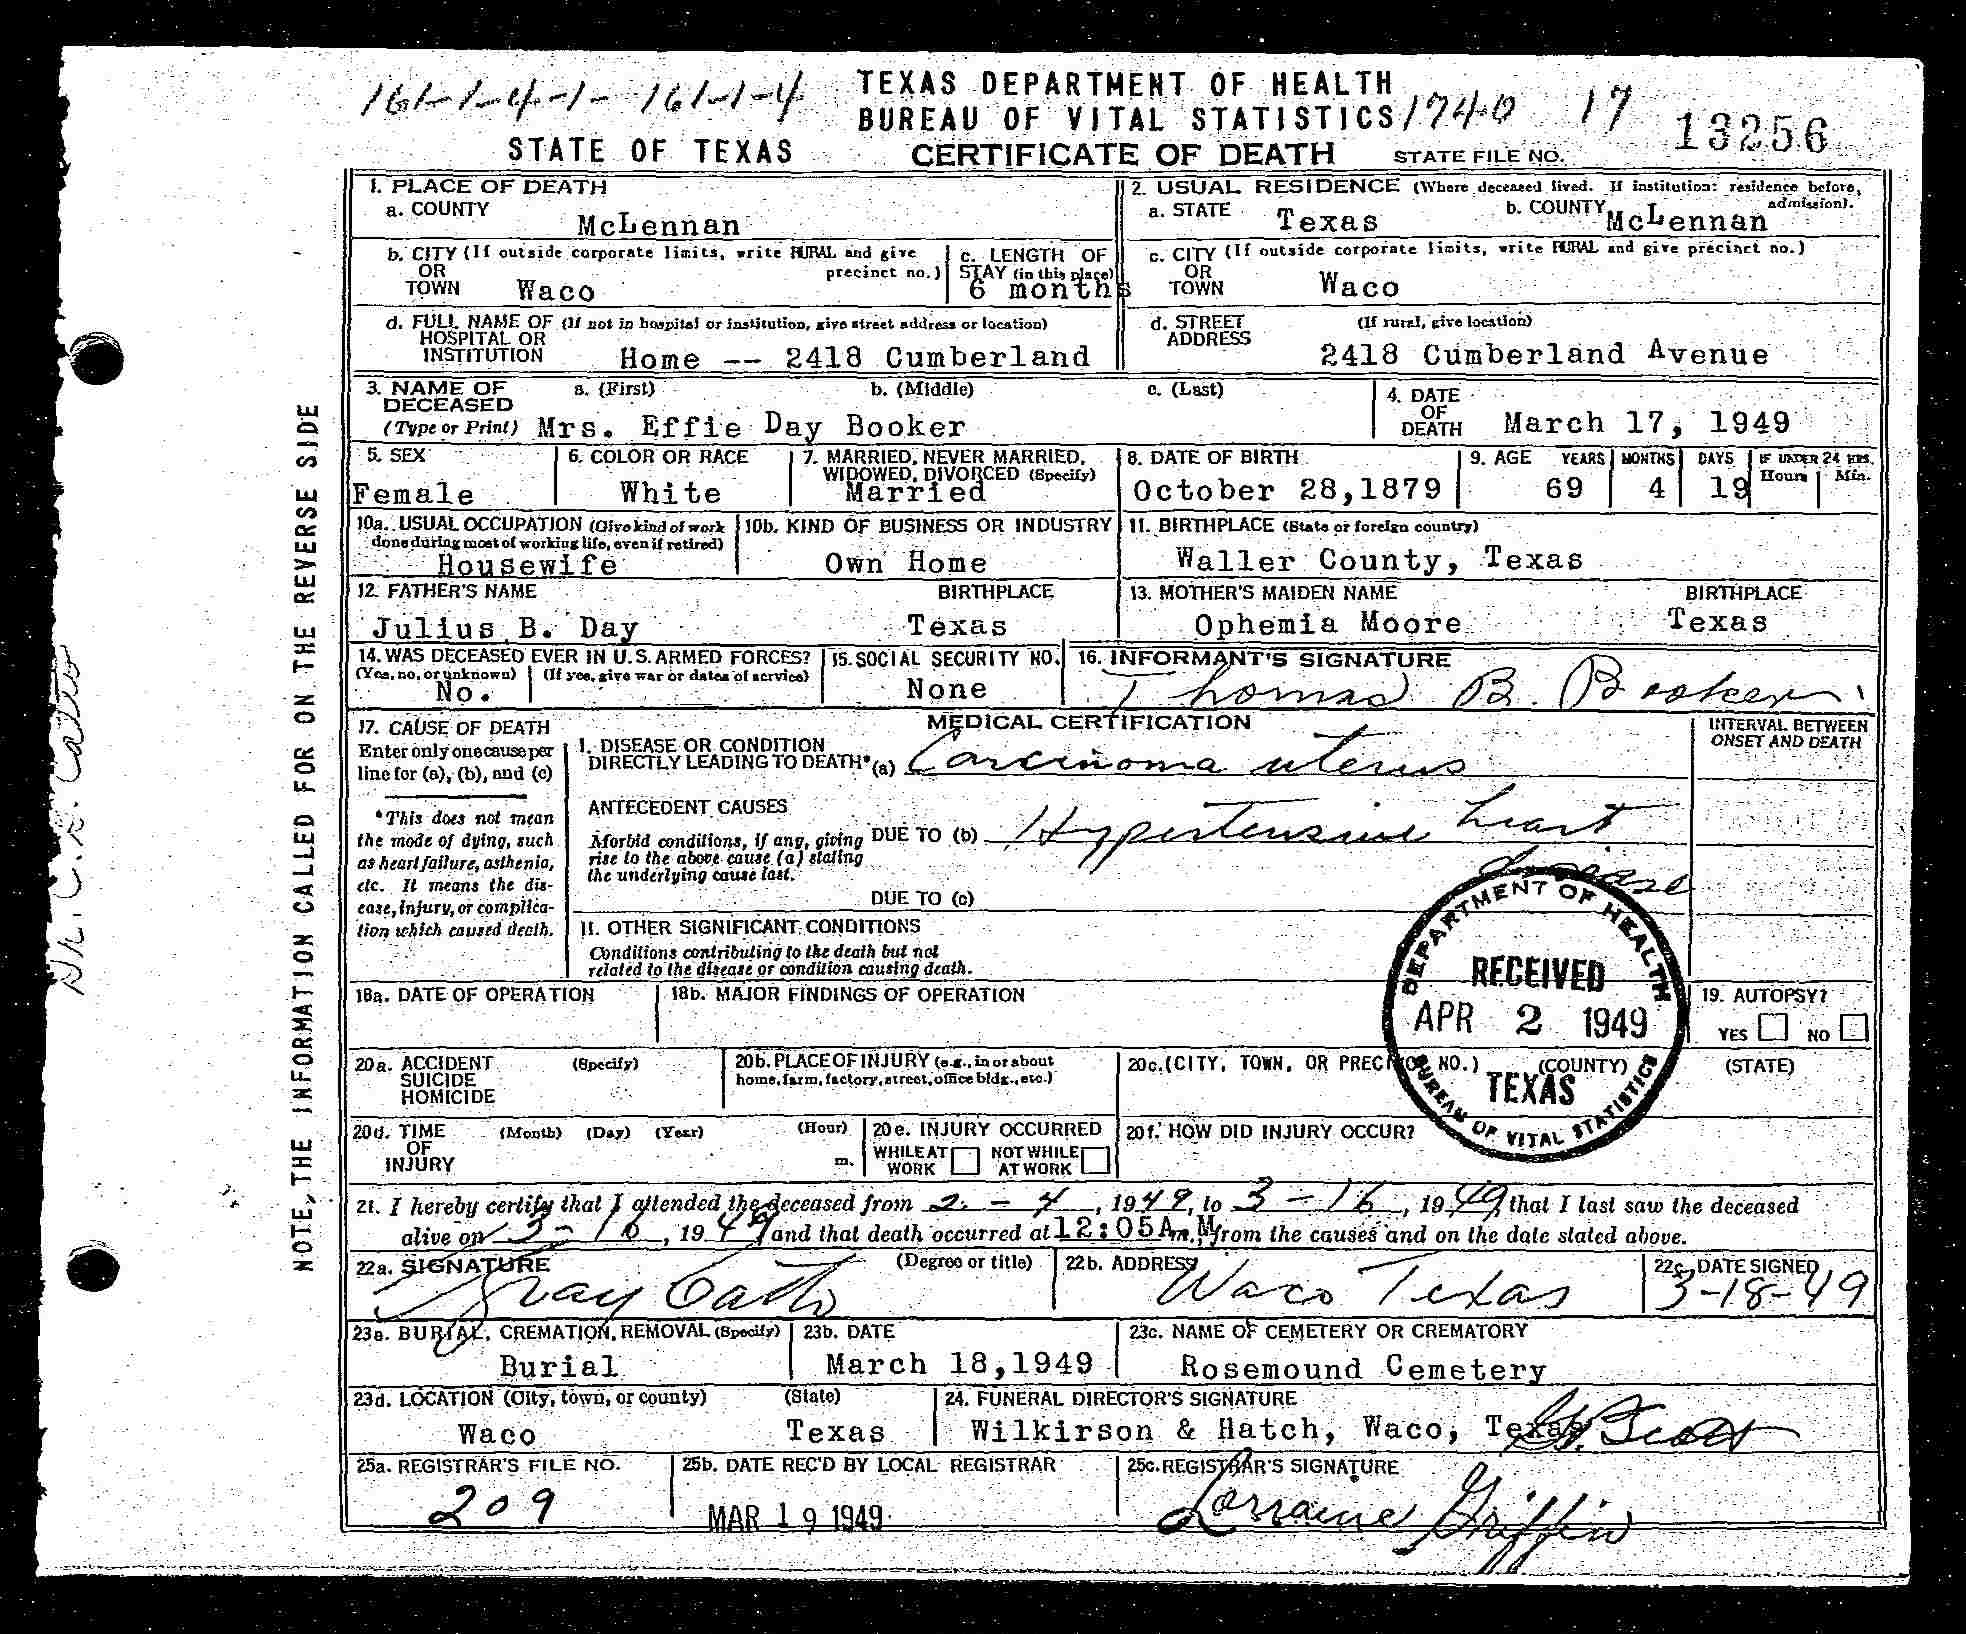 161-1-4-1- 161-1-4
TEXAS DEPARTMENT OF HEALTH
BUREAU OF VITAL STATISTICS 1740 17 13256
STATE OF TEXAS CERTIFICATE OF DEATH STATE FILE NO.
1. PLACE OF DEATH
a. COUNTY
McLennan
2. USUAL RESIDENCE (Where deceased lived. If institution: residence before admission).
a. STATE Texas b. COUNTY McLennan
b. CITY (If outside corporate limits, write RURAL and give precinct no.)
OR
TOWN Waco
c. LENGTH OF
STAY (in this place)
6 months
c. CITY (If outside corporate limits, write RURAL and give precinct no.)
OR
TOWN Waco
d. FULL NAME OF (If not in hospital or institution, give street address or location)
HOSPITAL OR
INSTITUTION Home -- 2418 Cumberland
d. STREET (If rural, give location)
ADDRESS
2418 Cumberland Avenue
3. NAME OF a. (First) b. (Middle) c. (Last)
DECEASED
(Type or Print) Mrs. Effie Day Booker
4. DATE
OF
DEATH March 17, 1949
5. SEX
Female
6. COLOR OR RACE
White
7. MARRIED, NEVER MARRIED,
WIDOWED, DIVORCED (Specify)
Married
8. DATE OF BIRTH
October 28,1879
9. AGE YEARS MONTHS DAYS IF UNDER 24 HRS.
Hours Min.
69 4 19
10a. USUAL OCCUPATION (Give kind of work
done during most of working life, even if retired)
Housewife
10b. KIND OF BUSINESS OR INDUSTRY
Own Home
11. BIRTHPLACE (State or foreign country)
Waller County, Texas
12. FATHER'S NAME BIRTHPLACE
Julius B. Day Texas
13. MOTHER'S MAIDEN NAME BIRTHPLACE
Ophemia Moore Texas
14. WAS DECEASED EVER IN U.S. ARMED FORCES?
(Yes, no, or unknown) (If yes, give war or dates of service)
No.
15. SOCIAL SECURITY NO.
None
16. INFORMANT'S SIGNATURE
Thomas B. Booker
17. CAUSE OF DEATH
Enter only one cause per
line for (a), (b), and (c)
*This does not mean
the mode of dying, such
as heart failure, asthenia,
etc. It means the dis-
ease, injury, or complica-
tion which caused death.
MEDICAL CERTIFICATION
I. DISEASE OR CONDITION
DIRECTLY LEADING TO DEATH* (a) Carcinoma uterus
ANTECEDENT CAUSES
Morbid conditions, if any, giving
rise to the above cause (a) stating
the underlying cause last.
DUE TO (b) Hypertensive heart
disease
DUE TO (c)
II. OTHER SIGNIFICANT CONDITIONS
Conditions contributing to the death but not
related to the disease or condition causing death.
INTERVAL BETWEEN
ONSET AND DEATH
18a. DATE OF OPERATION
18b. MAJOR FINDINGS OF OPERATION
19. AUTOPSY?
YES NO
DEPARTMENT OF HEALTH
RECEIVED
APR 2 1949
TEXAS
BUREAU OF VITAL STATISTICS
20a. ACCIDENT (Specify)
SUICIDE
HOMICIDE
20b. PLACE OF INJURY (e.g., in or about
home, farm, factory, street, office bldg., etc.)
20c. (CITY, TOWN, OR PRECINCT NO.) (COUNTY) (STATE)
20d. TIME (Month) (Day) (Year) (Hour)
OF
INJURY m.
20e. INJURY OCCURRED
WHILE AT WORK NOT WHILE AT WORK
20f. HOW DID INJURY OCCUR?
21. I hereby certify that I attended the deceased from 2-4, 1949, to 3-16, 1949, that I last saw the deceased
alive on 3-16, 1949 and that death occurred at 12:05A.M. m., from the causes and on the date stated above.
22a. SIGNATURE (Degree or title)
22b. ADDRESS
Waco Texas
22c. DATE SIGNED
3-18-49
23a. BURIAL, CREMATION, REMOVAL (Specify)
Burial
23b. DATE
March 18,1949
23c. NAME OF CEMETERY OR CREMATORY
Rosemound Cemetery
23d. LOCATION (City, town, or county) (State)
Waco Texas
24. FUNERAL DIRECTOR'S SIGNATURE
Wilkirson & Hatch, Waco, Texas
25a. REGISTRAR'S FILE NO.
209
25b. DATE REC'D BY LOCAL REGISTRAR
MAR 19 1949
25c. REGISTRAR'S SIGNATURE
Lorraine Griffin
NOTE, THE INFORMATION CALLED FOR ON THE REVERSE SIDE